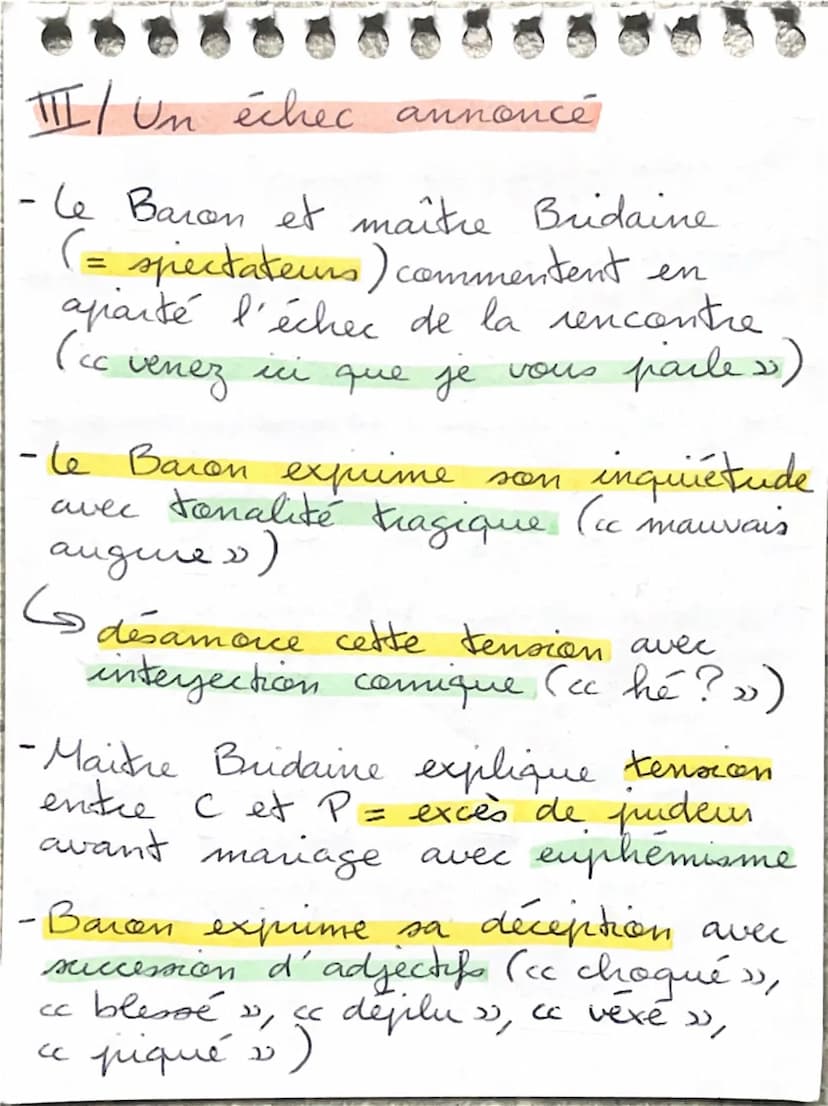 III/ Un échec annoncé
- Le Baron et maître Bridaine
(= spectateurs) commentent en
aparté l'échec de la rencontre
(« venez ici que je vous parle »)
- Le Baron exprime son inquiétude
avec tonalité tragique (« mauvais
augure »)
↳ désamorce cette tension avec
interjection comique (« hé ? »)
- Maitre Bridaine explique tension
entre C et P = excès de pudeur
avant mariage avec euphémisme
- Baron exprime sa déception avec
succession d'adjectifs (« choqué »,
« blessé », « déplu », « véxé »,
« piqué »)